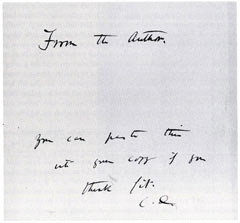 From the Author.
You can paste this
into your copy if you
think fit.
C. D.